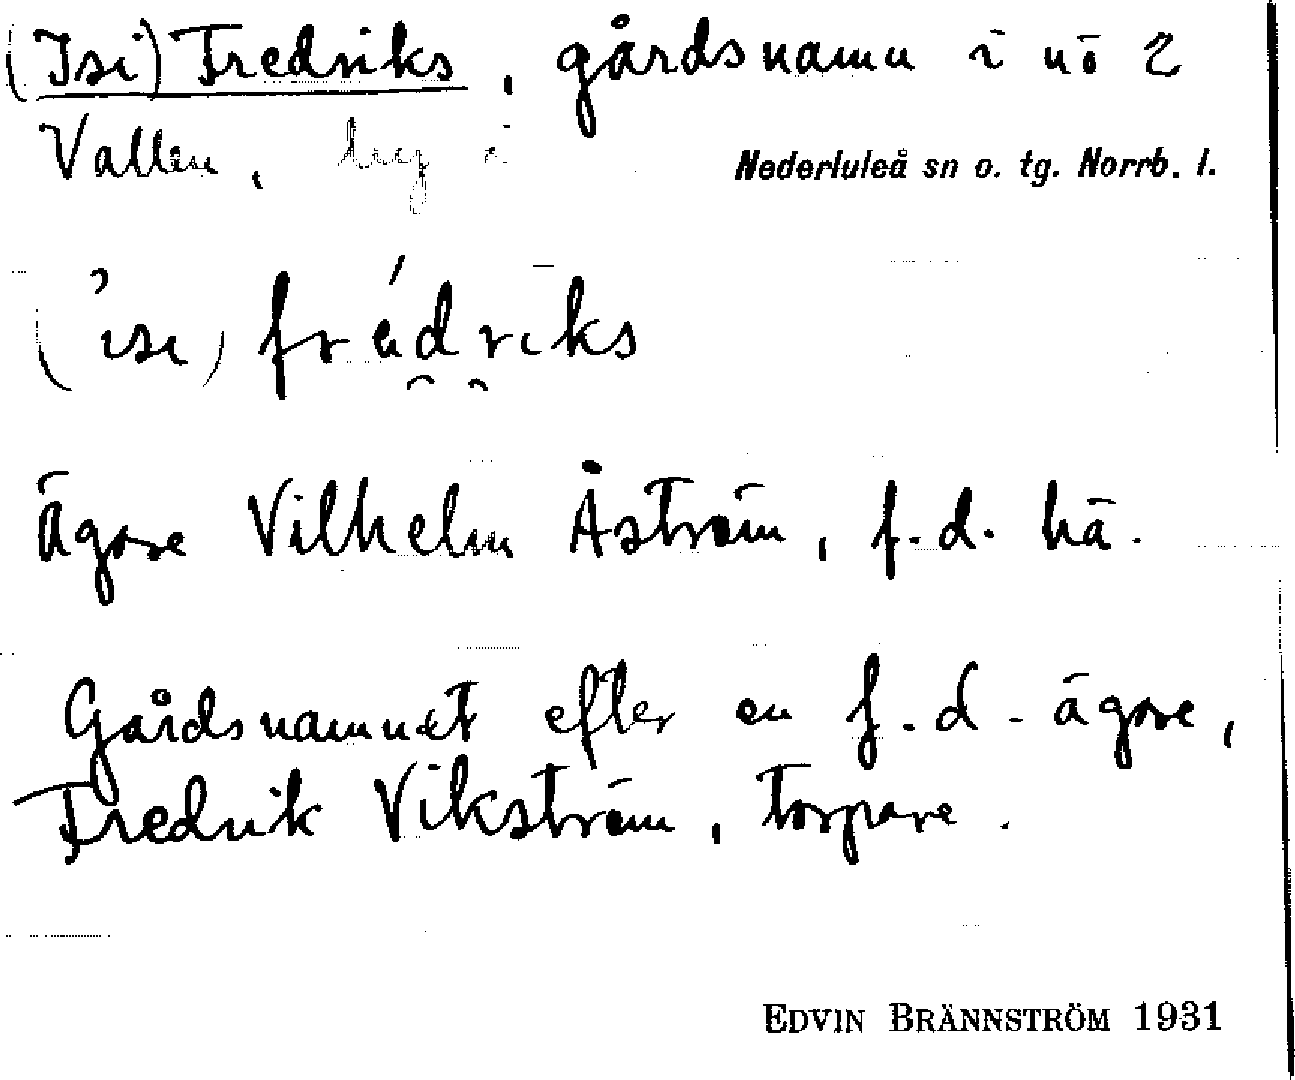 (Isi) Fredriks, gårdsnamn i nö 2
Vallen, by i Nederluleå sn o. tg. Norrb. l.
(ʼisi) frédriks
Ägare Vilhelm Åström, f.d. hä.
Gårdsnamnet efter en f.d. ägare,
Fredrik Vikström, torpare.
EDVIN BRÄNNSTRÖM 1931